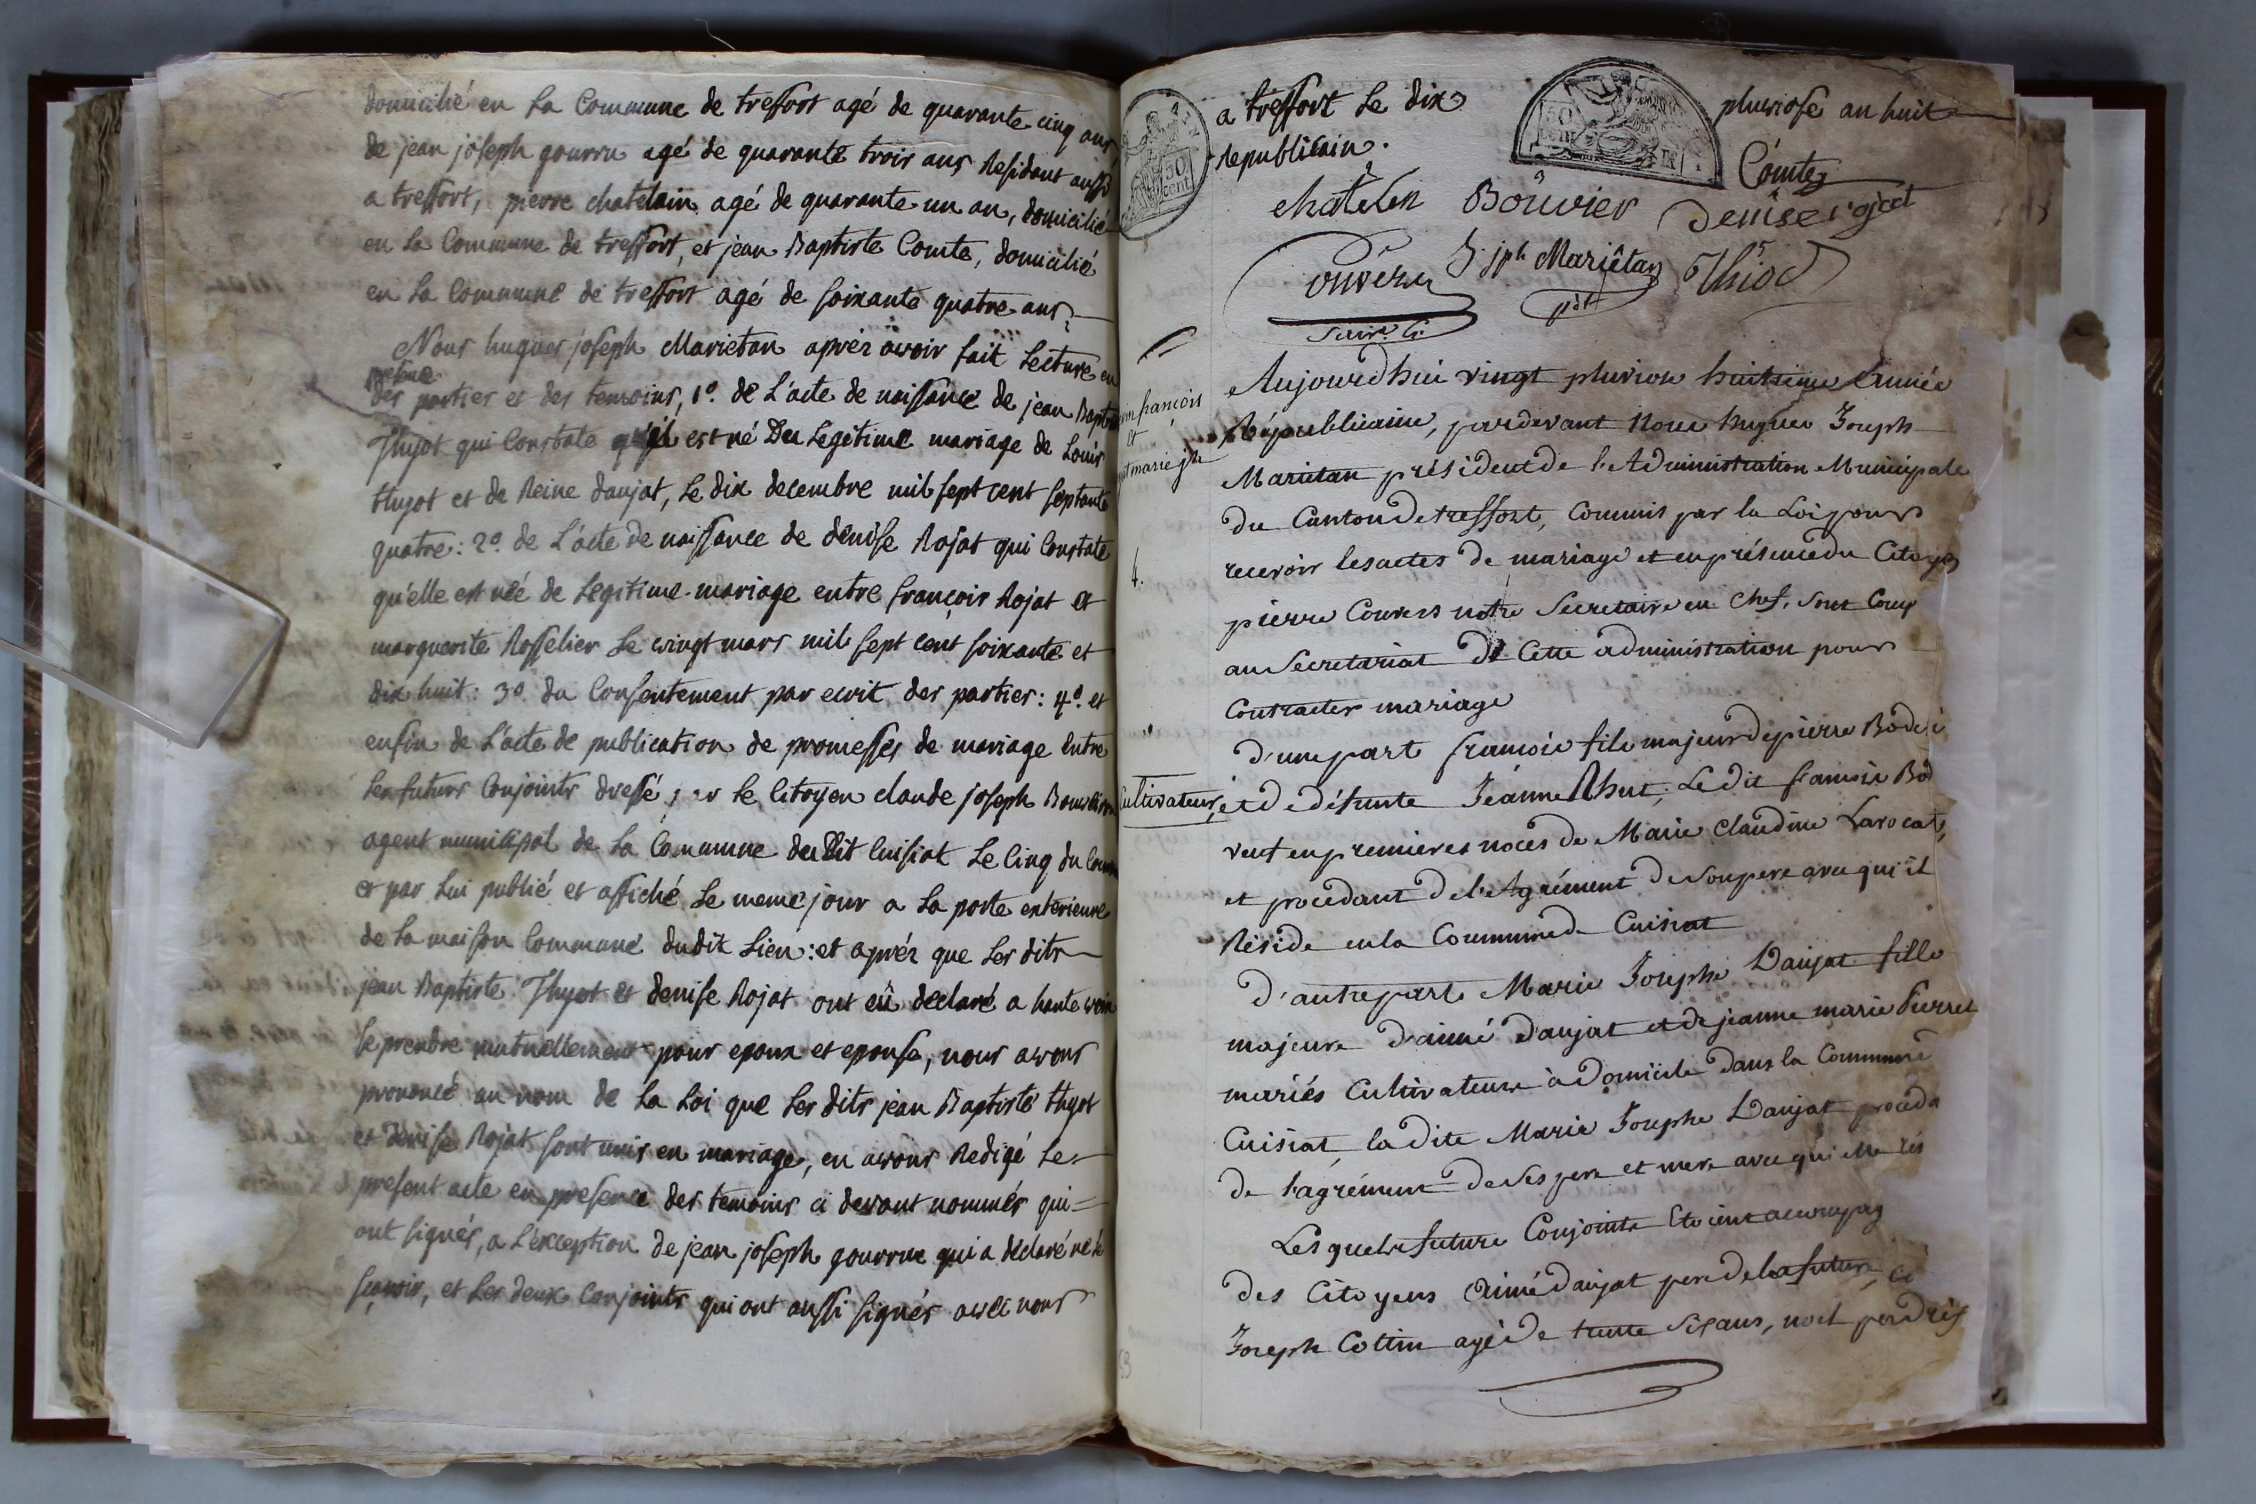 domicilié en la Commune de treffort agé de quarante cinq ans
de jean joseph gourru agé de quarante trois ans Residant aussi
a treffort, pierre chatelain agé de quarante un an, domicilié
en la Commune de treffort, et jean Baptiste Comte, domicilié
en la Commune de treffort agé de soixante quatre ans
Nous hugues joseph Marietan aprés avoir fait Lecture en
des parties et des temoins, 1º. de L'acte de naissance de jean Baptiste
Thyot qui Constate qu'il est né Du Legitime mariage de Louis
thyot et de Reine daujat, Le dix decembre mil sept cent septante
quatre : 2º. de L'acte de naissance de denise Rojat qui Constate
qu'elle est née de Legitime mariage entre françois Rojat et
marguerite Rosselier Le vingt mars mil sept cent soixante et
dix huit : 3º. du Consentement par ecrit des parties : 4º. et
enfin de L'acte de publication de promesses de mariage Entre
Les futurs Conjoints dressé par Le Citoyen claude joseph
agent municipal de la Commune du Dit Cuisiat Le Cinq du
et par Lui publié et affiché Le meme jour a La porte exterieure
de La maison Commune dudit Lieu : et aprés que Les dits
jean Baptiste Thyot et denise Rojat ont eû declaré a haute voix
se prendre mutuellement pour epoux et epouse, nous avons
prononcé au nom de La Loi que Les dits jean Baptiste thyot
et denise Rojat sont unis en mariage, en avons Redigé Le
present acte en presence des temoins ci devant nommés qui
ont signés, a L'exception de jean joseph gourrue qui a declaré ne le
sçavoir, et Les deux Conjoints qui ont aussi signés avec nous
a treffort Le dix pluviose an huit
republicain.
Comte
chatelen Bouvier denise rojat
J. jph Mariêtan Thiod
pdt
50 cent
françois
et
marie jph
4.
Aujourdhui vingt pluviose huitieme année
Républicaine, pardevant Nous hugues Joseph
Marietan président de l'Administration Municipale
du Canton de treffort, Commis par la Loi pour
recevoir les actes de mariage et en présence du Citoyen
pierre notre Secretaire en Chef. sont Comp
au Secretariat de Cette administration pour
Contracter mariage
d'une part francois fils majeur de pierre
Cultivateur, et de défunte Jeanne Ledit francois
veuf en premieres noces de Marie Claudine Larocat,
et procédant de l'Agrément de son pere avec qui il
Réside en la Commune de Cuisiat
d'autre part Marie Josephe Daujat fille
majeure d'aimé daujat et de jeanne marie Pierret
mariés Cultivateurs à domicile dans la Commune
Cuisiat, la dite Marie Josephe Daujat
de l'agrément de ses pere et mere avec qui elle
Lesquels future Conjoints Etoient
des Citoyens Aimé daujat pere de la future,
Joseph Cotin agé de trente six ans, noel perdrix